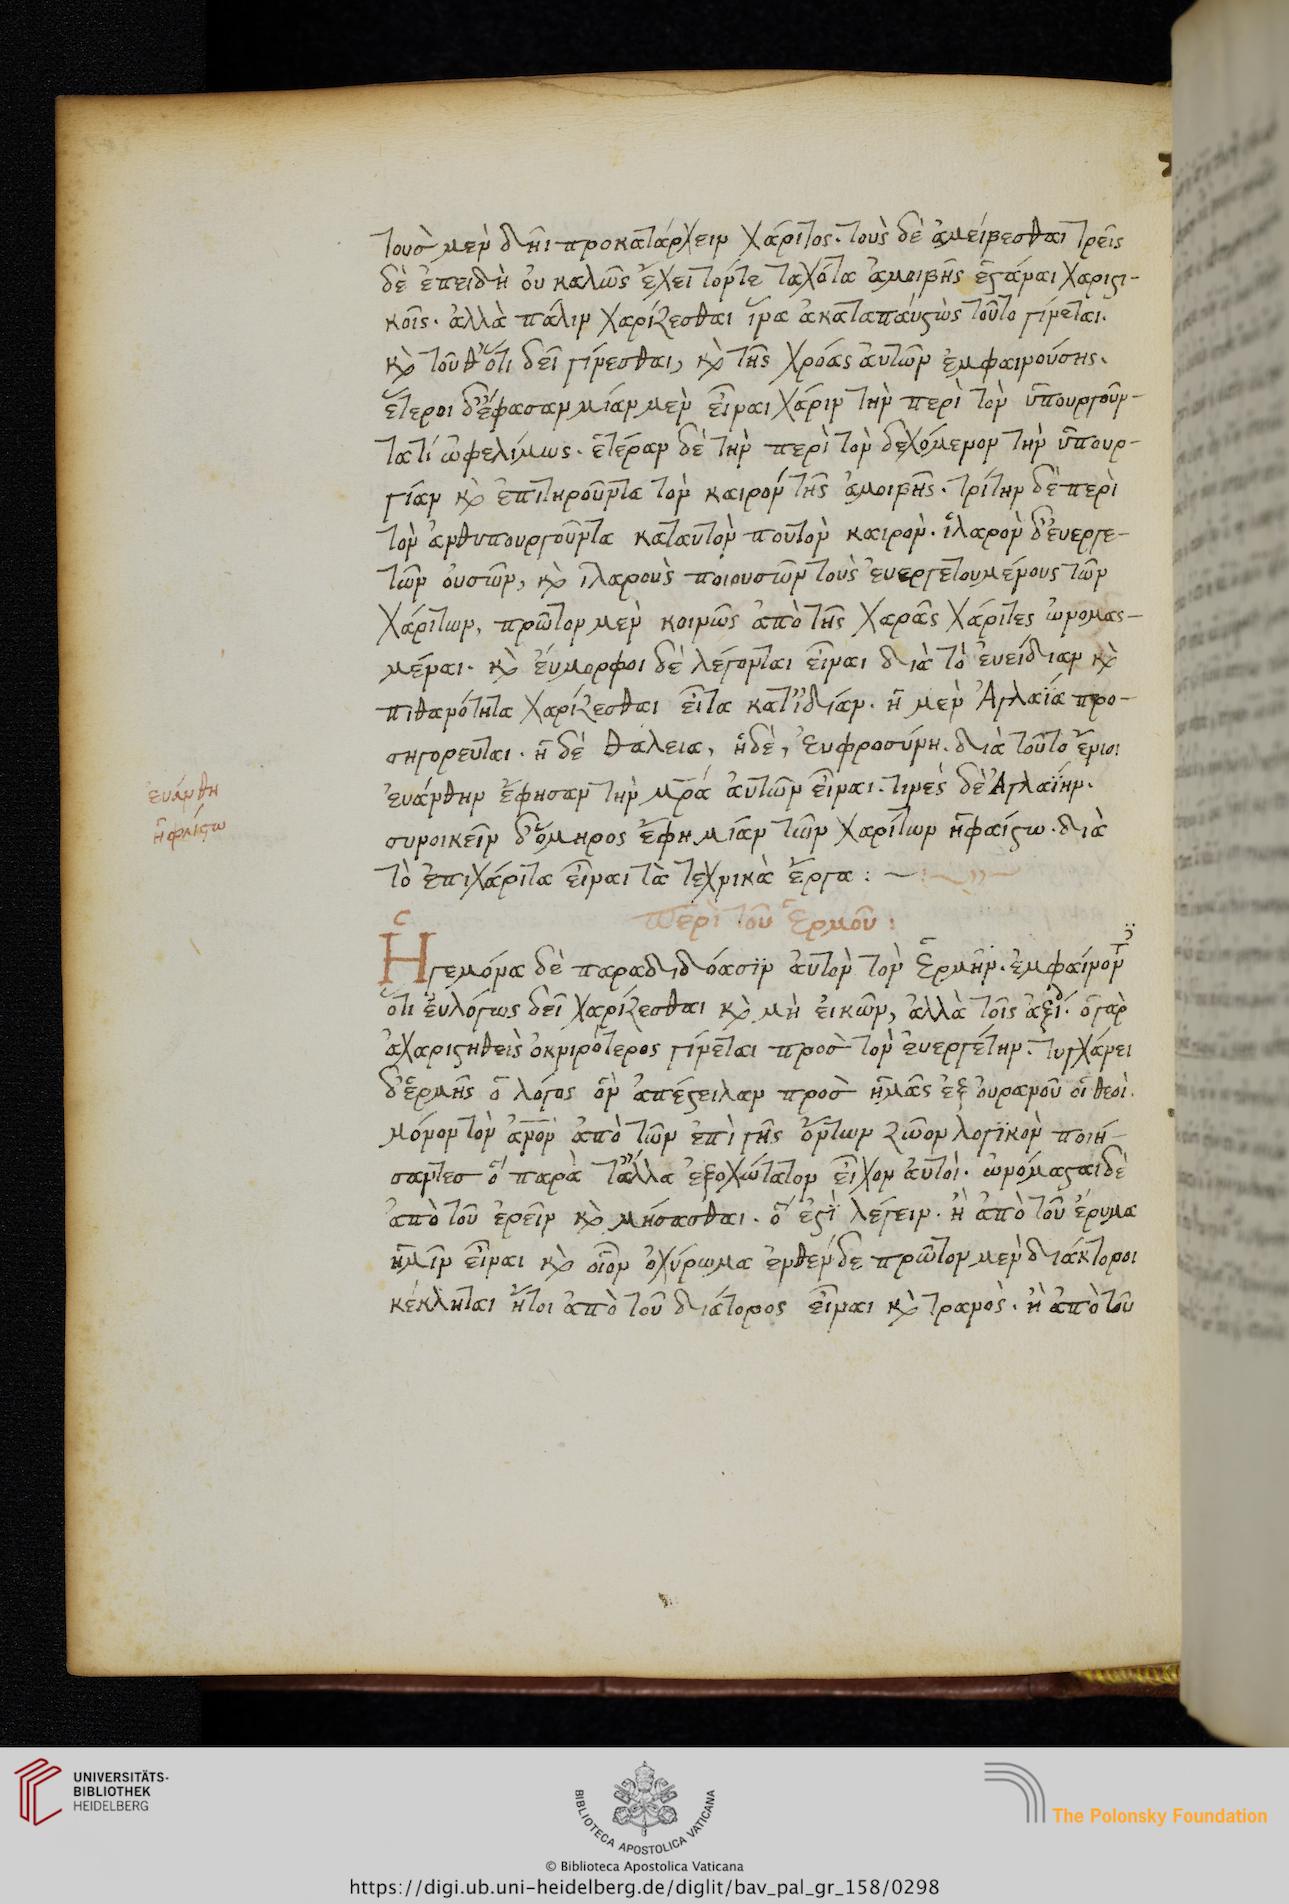 τοὺσ μὲν δῆι προκατάρχειν χάριτος· τοὺς δὲ ἀμείβεσθαι τρεῖς
δὲ ἐπειδὴ οὐ καλῶς ἔχει τόντε ταχότα ἀμοιβῆς ἑστάναι χαριστι-
κοῖς· ἀλλὰ πάλιν χαρίζεσθαι ἵνα ἀκαταπαύστως τοῦτο γίνεται.
κὶ τοῦθ' ὅτι δεῖ γίνεσθαι, κὶ τῆς χροάς αὐτῶν ἐμφαινούσης.
ἕτεροι δ' ἔφασαν μίαν μὲν εἶναι χάριν τὴν περὶ τὸν ὑπουργοῦν-
τα τί ὠφελίμως· ἑτέραν δὲ τὴν περὶ τὸν δεχόμενον τὴν ὑπουρ-
γίαν κὶ ἐπιτηροῦντα τὸν καιρόν τῆς ἀμοιβῆς· τρίτην δὲ περὶ
τὸν ἀνθυπουργοῦντα καταυτὸν πουτὸν καιρὸν· ἱλαρὸν δ' ἐυεργε-
τῶν ὀυσιῶν, κὶ ἱλαροὺς ποιουσιῶν τοὺς ἐυεργετουμένους τῶν
χαρίτων, πρῶτον μὲν κοινῶς ἀπὸ τῆς χαρᾶς χάριτες ὠνομας-
μέναι· κὶ ἔυμορφοι δὲ λέγονται εἶναι διὰ τὸ ἐυείδιαν κὶ
πιθανότητα χαρίζεσθαι εἶτα κατ' ἰδίαν· ἡ μὲν Ἀγλαΐα προ-
σηγορεῦται· ἡ δὲ θάλεια, ἡ δὲ, Ἐυφροσύνη· διὰ τοῦτο ἔνιοι
ἐυάνθην ἔφησαν τὴν μρ̅ά αὐτῶν εἶναι· τινές δὲ Ἀγλαΐην·
συνοικεῖν δ' ὅμηρος ἔφη μίαν τῶν χαρίτων ἡφαίστω· διὰ
τὸ ἐπιχάριτα εἶναι τὰ τεχνικὰ ἔργα :
ἐυάνθη
ἡφαίστω
Περὶ τοῦ Ἑρμοῦ :
Ἡγεμόνα δὲ παραδιδόασϊν αὐτὸν τὸν Ἑρμῆν· ἐμφαίνον
ὅτι ἐυλόγως δεῖ χαρίζεσθαι κὶ μὴ εἰκῶν, ἀλλὰ τοῖς ἀξί· ὁ γὰρ
ἀχαριστηθεὶς ὀκνιρότερος γίνεται προσ τὸν ἐυεργέτην· τυγχάνει
δ' ἑρμῆς ὁ λόγος ὃν ἀπέστειλαν προσ ἡμᾶς ἐξ ὀυρανοῦ οἱ θεοὶ.
μόνον τὸν ἀν̅ο̅ν ἀπὸ τῶν ἐπὶ γῆς ὄντων ζῶον λογϊκὸν ποιή-
σαντεσ ὅ παρὰ τἄλλα ἐξοχώτατον εἶχον ἀυτοὶ· ὠνόμασται δὲ
ἀπὸ τοῦ ἐρεῖν κὶ μήσασθαι· ὅ ἐστϊ λέγειν· ἢ ἀπὸ τοῦ ἔρυμα
ἡμῖν εἶναι κὶ οἷον ὀχύρωμα ἐνθένδε πρῶτον μὲν διάκτοροι
κέκληται ἤτοι ἀπὸ τοῦ διάτορος εἶναι κὶ τρανὸς· ἢ ἀπὸ τοῦ
UNIVERSITÄTS-
BIBLIOTHEK
HEIDELBERG
BIBLIOTECA APOSTOLICA VATICANA
The Polonsky Foundation
© Biblioteca Apostolica Vaticana
https://digi.ub.uni-heidelberg.de/diglit/bav_pal_gr_158/0298